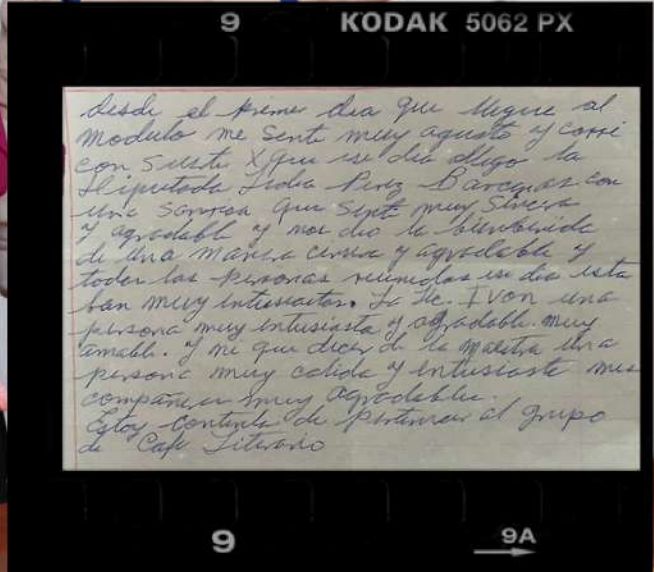 9 KODAK 5062 PX
Desde el primer dia que llegue al
modulo me Senti muy agusto y corri
con Suerte X que ese dia llego la
Diputada Lidia Perez Barcenas con
una Sonrisa que Senti muy Sincera
y agradable y nos dio la bienbenida
de una manera cirera y agradable y
todas las personas reunidas ese dia esta
ban muy entusiastas. La Lic. Ivon una
persona muy entusiasta y agradable. muy
amable. y ni que decir de la maestra una
persona muy calida y entusiasta mis
compañeras muy agradables.
Estoy contenta de pertenecer al grupo
de Cafe Literario
9 9A